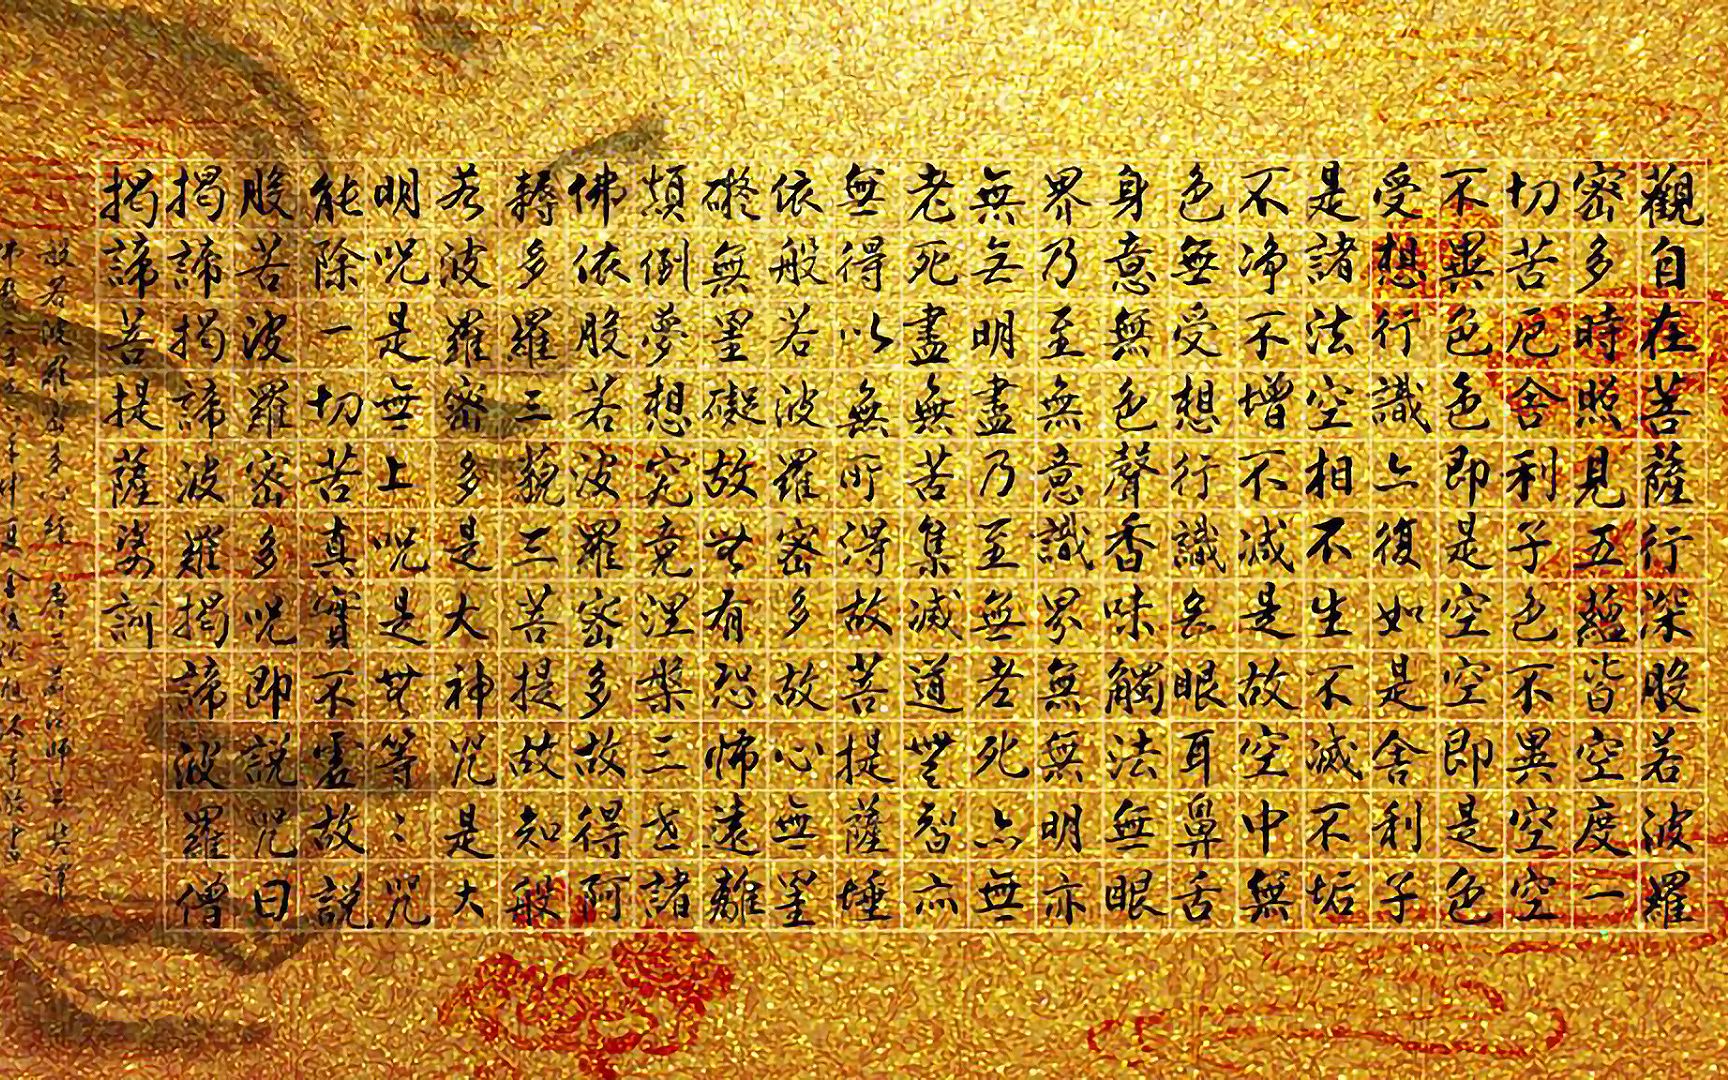 觀自在菩薩行深般若波羅
密多時照見五蘊皆空度一
切苦厄舍利子色不異空空
不異色色即是空空即是色
受想行識亦復如是舍利子
是諸法空相不生不滅不垢
不净不增不減是故空中無
色無受想行識無眼耳鼻舌
身意無色聲香味觸法無眼
界乃至無意識界無無明亦
無無明盡乃至無老死亦無
老死盡無苦集滅道無智亦
無得以無所得故菩提薩埵
依般若波羅密多故心無罣
礙無罣礙故無有恐怖遠離
顛倒夢想究竟涅槃三世諸
佛依般若波羅密多故得阿
耨多羅三藐三菩提故知般
若波羅密多是大神咒是大
明咒是無上咒是無等〻咒
能除一切苦真實不虛故說
般若波羅密多咒即說咒曰
揭諦揭諦波羅揭諦波羅僧
揭諦菩提薩婆訶
般若波羅密多心經 唐三藏法師玄奘譯